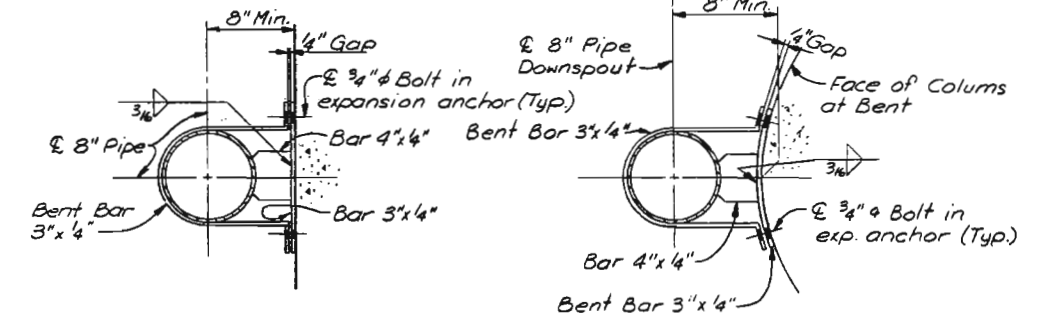 8" Min.
1/4" Gap
℄ 3/4" ϕ Bolt in
expansion anchor (Typ.)
3/16
℄ 8" Pipe
Bar 4"x1/4"
Bent Bar
3"x 1/4"
Bar 3"x 1/4"
8" Min.
℄ 8" Pipe
Downspout
1/4" Gap
Face of Colums
at Bent
Bent Bar 3"x1/4"
3/16
℄ 3/4" ϕ Bolt in
exp. anchor (Typ.)
Bar 4"x 1/4"
Bent Bar 3"x 1/4"